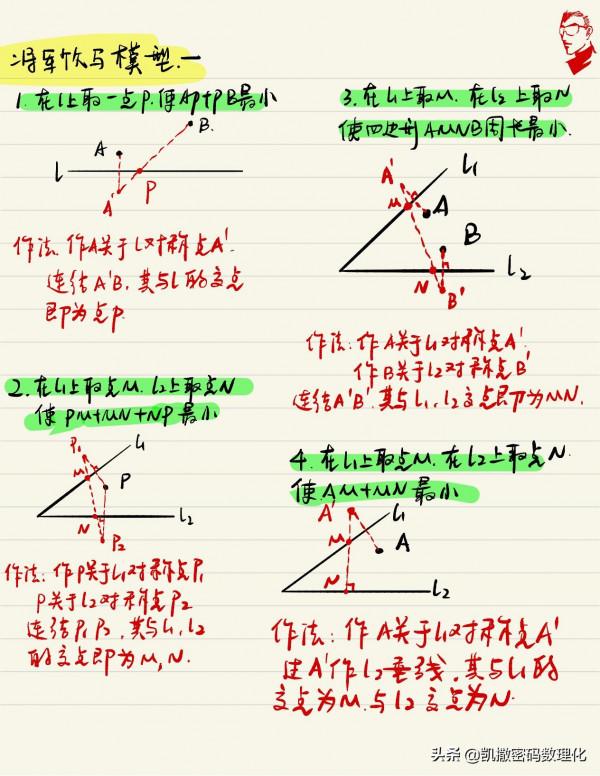 将军饮马模型.一
1. 在l上取一点P.使AP+PB最小
A
B
l
P
A'
作法. 作A关于l对称点A'.
连结A'B, 其与l的交点
即为点P.
2. 在l₁上取点M. l₂上取点N
使PM+MN+NP最小
P₁
l₁
M
P
N
l₂
P₂
作法: 作P关于l₁对称点P₁
P关于l₂对称点P₂
连结P₁P₂, 其与l₁, l₂
的交点即为M, N.
3. 在l₁上取M. 在l₂上取N
使四边形AMNB周长最小.
A'
l₁
M
A
B
N
l₂
B'
作法: 作A关于l₁对称点A'.
作B关于l₂对称点B'
连结A'B'. 其与l₁、l₂交点即为MN.
4. 在l₁上取点M. 在l₂上取点N.
使AM+MN最小
A'
l₁
M
A
N
l₂
作法: 作A关于l₁对称点A'
过A'作l₂垂线, 其与l₁的
交点为M. 与l₂交点为N.
头条 @凯撒密码数理化